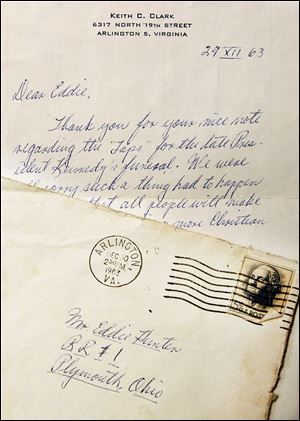 KEITH C. CLARK
6317 NORTH 19TH STREET
ARLINGTON 5, VIRGINIA
29 XII 63
Dear Eddie,
Thank you for your nice note
regarding the "Taps" for the late Pres-
ident Kennedy's funeral. We were
sorry such a thing had to happen
that all people will make
more Christian
ARLINGTON
DEC 30
1963
VA.
Mr Eddie Hunter
RR #1
Plymouth, Ohio